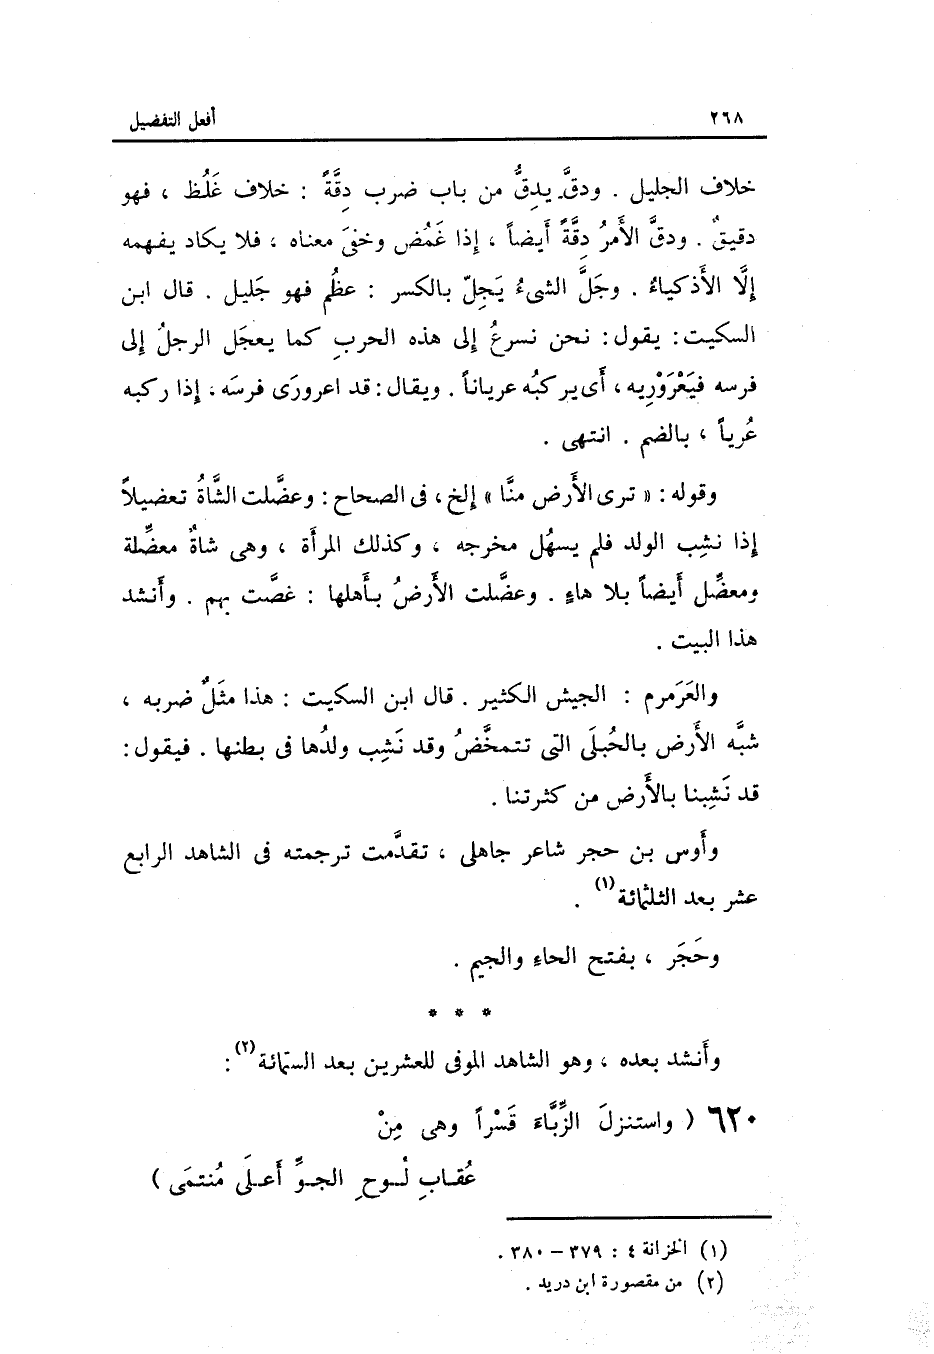 ٢٦٨ أفعل التفضيل
خلاف الجليل . ودقَّ يدِقُّ من باب ضرب دِقَّةً : خلاف غَلُظ ، فهو
دقيقٌ . ودقَّ الأمرُ دِقَّةً أَيضاً ، إذا غَمُض وخفىَ معناه ، فلا يكاد يفهمه
إلَّا الأَذكياءُ . وجَلَّ الشىءُ يَجِلّ بالكسر : عظُم فهو جَليل . قال ابن
السكيت : يقول : نحن نسرعُ إلى هذه الحربِ كما يعجَل الرجلُ إلى
فرسه فيَعْرَوْرِيه ، أَى يركبُه عرياناً . ويقال : قد اعرورَى فرسَه ، إذا ركبه
عُرياً ، بالضم . انتهى .
وقوله : « ترى الأَرض منَّا » إلخ ، فى الصحاح : وعضَّلت الشَّاةُ تعضيلاً
إذا نشِب الولد فلم يسهُل مخرجه ، وكذلك المرأَة ، وهى شاةٌ معضِّلة
ومعضِّل أَيضاً بلا هاءٍ . وعضَّلت الأَرضُ بأَهلها : غصَّت بهم . وأَنشد
هذا البيت .
والعَرَمرم : الجيش الكثير . قال ابن السكيت : هذا مثَلٌ ضربه ،
شبَّه الأَرض بالحُبلَى التى تتمخَّضُ وقد نَشِب ولدُها فى بطنها . فيقول :
قد نَشِبنا بالأَرض من كثرتنا .
وأَوس بن حجر شاعر جاهلى ، تقدَّمت ترجمته فى الشاهد الرابع
عشر بعد الثلثمائة (١) .
وحَجَر ، بفتح الحاءِ والجيم .
* * *
وأَنشد بعده ، وهو الشاهد الموفى للعشرين بعد الستمائة (٢) :
٦٢٠ ( واستنزلَ الزَّبَّاءَ قَسْراً وهى مِنْ
عُقابِ لُوحِ الجوِّ أَعلَى مُنتمَى )
(١) الخزانة ٤ : ٣٧٩ – ٣٨٠ .
(٢) من مقصورة ابن دريد .